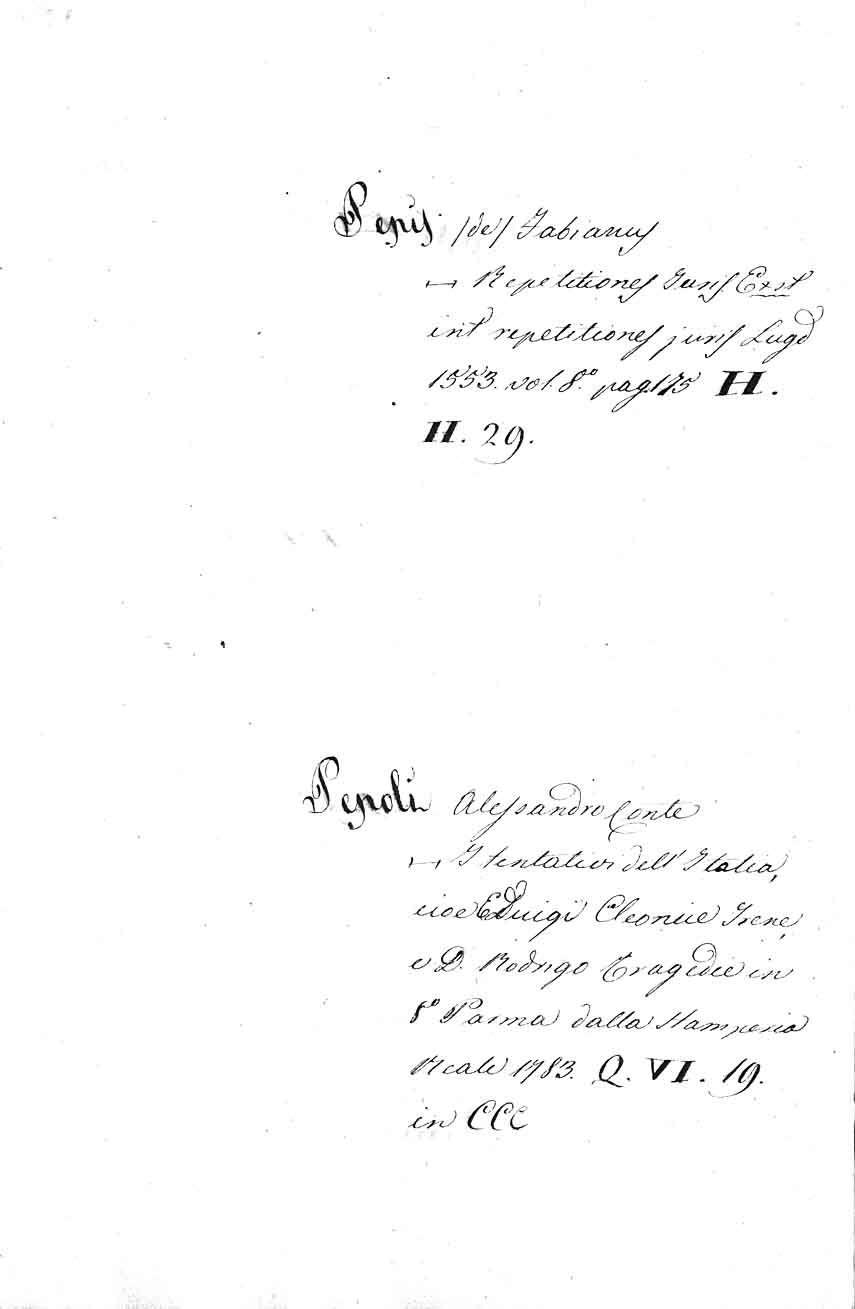 Pepis /de/ Fabianus
Repetitiones Juris Exst
int repetitiones juris Lugd
1553. vol. 8.º pag. 175 H.
H. 29.
Pepoli Alessandro Conte
I tentativi dell' Italia,
cioe Eduigi Cleonice Irene,
e D. Rodrigo Tragedie in
8º Parma dalla Stamperia
Reale 1783. Q. VI. 19.
in CCC